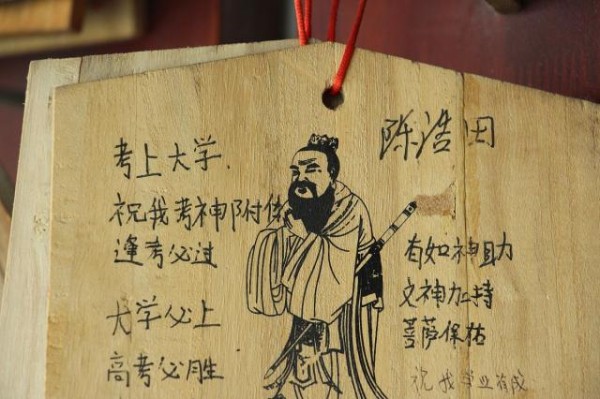 考上大学.
祝我考神附体
逢考必过
大学必上
高考必胜
陈浩田
有如神助
文神加持
菩萨保佑
祝我学业有成